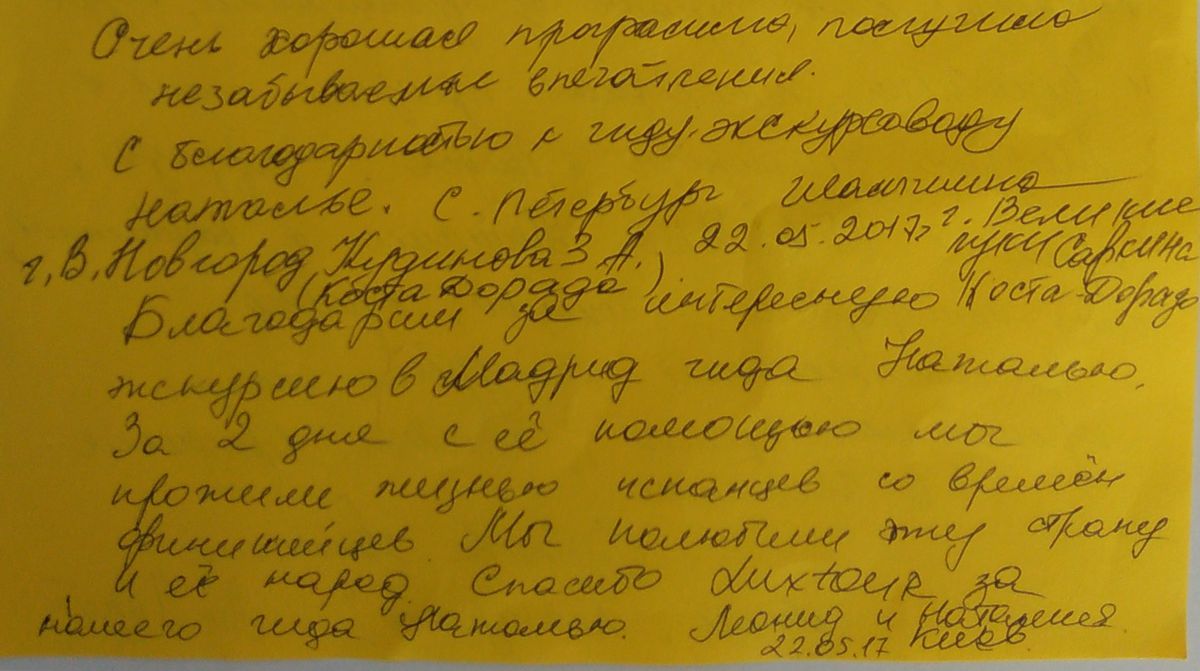 Очень хорошая программа, получила
незабываемые впечатления.
С благодарностью к гиду-экскурсоводу
Наталье. С. Петербург
г. В. Новгород, Кудинова З А. 22.05.2017г. г. Великие
(Коста Дорадо) Луки Саркина
Благодарим за интересную Коста-Дорадо
экскурсию в Мадрид гида Наталью.
За 2 дня с её помощью мы
прожили жизнью испанцев со времён
финикийцев Мы полюбили эту страну
и её народ Спасибо Luxtour за
нашего гида Наталью. Леонид и Наталия
22.05.17 Киев